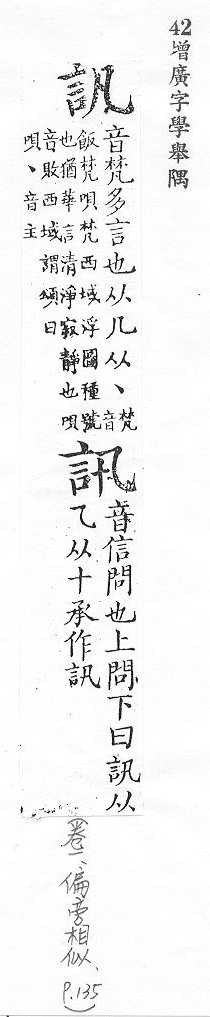 42 增廣字學舉隅
訉 音梵多言也从几从丶梵音
飯梵唄梵西域浮圖種號
也猶華言清淨寂靜也唄
音敗西域謂頌曰
唄丶音主
訊 音信問也上問下曰訊从
乙从十承作訉
卷一、偏旁相似、P.135